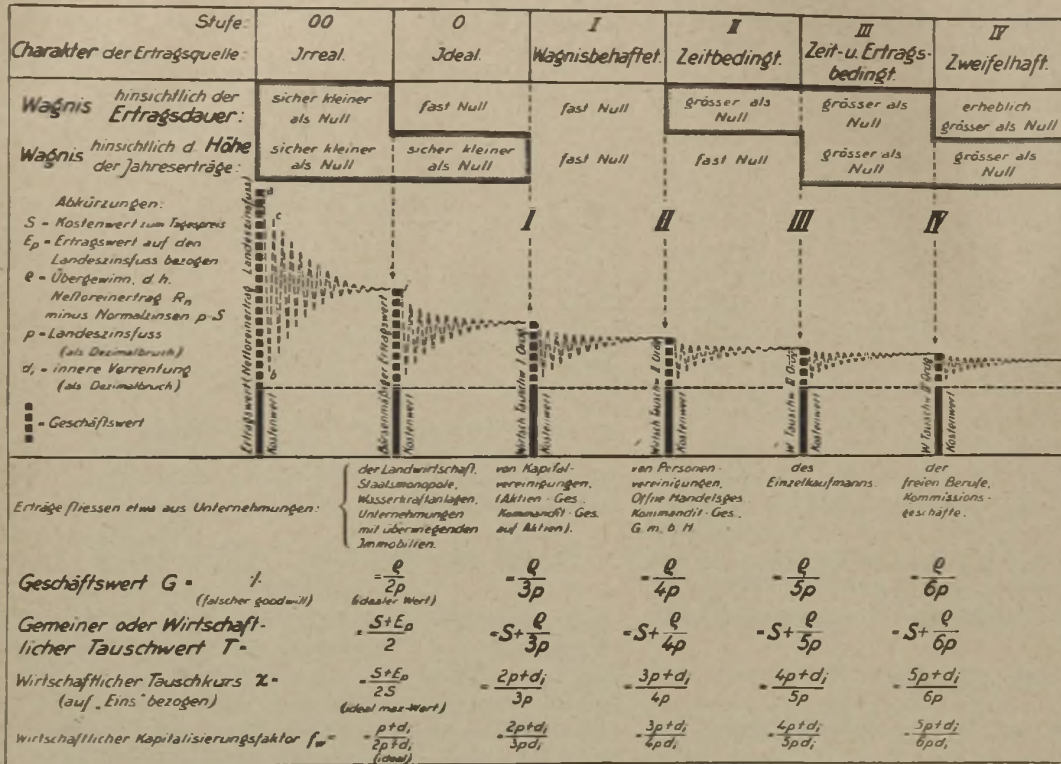 Stufe: 00 0 I II III IV
Charakter der Ertragsquelle: Jrreal. Jdeal. Wagnisbehaftet. Zeitbedingt. Zeit-u. Ertrags-
bedingt. Zweifelhaft.
Wagnis hinsichtlich der
Ertragsdauer:
sicher kleiner
als Null
fast Null
fast Null
grösser als
Null
grösser als
Null
erheblich
grösser als Null
Wagnis hinsichtlich d. Höhe
der Jahreserträge:
sicher kleiner
als Null
sicher kleiner
als Null
fast Null
fast Null
grösser als
Null
grösser als
Null
Abkürzungen:
S = Kostenwert zum Tagespreis
Ep = Ertragswert auf den
Landeszinsfuss bezogen
ϱ = Übergewinn, d. h.
Nettoreinertrag Rn
minus Normalzinsen p·S
p = Landeszinsfuss
(als Dezimalbruch)
di = innere Verrentung
(als Dezimalbruch)
= Geschäftswert
a
c
b
I II III IV
Ertragswert (Nettoreinertrag Landeszinsfuss)
Kostenwert
Börsenmäßiger Ertragswert
Kostenwert
Wirtsch Tauschw I Ordg
Kostenwert
Wirtsch Tauschw II Ordg
Kostenwert
W Tauschw III Ordg
Kostenwert
W Tauschw IV Ordg
Kostenwert
Erträge fliessen etwa aus Unternehmungen:
der Landwirtschaft,
Staatsmonopole,
Wasserkraftanlagen,
Unternehmungen
mit überwiegenden
Jmmobilien.
von Kapital-
vereinigungen,
(Aktien-Ges.
Kommandit-Ges.
auf Aktien).
von Personen-
vereinigungen,
Offne Handelsges.
Kommandit-Ges.
G. m. b. H.
des
Einzelkaufmanns.
der
freien Berufe,
Kommissions-
geschäfte.
Geschäftswert G = ·/. = ϱ/2p = ϱ/3p = ϱ/4p = ϱ/5p = ϱ/6p
(falscher goodwill) (idealer Wert)
Gemeiner oder Wirtschaft-
licher Tauschwert T = = S+Ep/2 = S+ϱ/3p = S+ϱ/4p = S+ϱ/5p = S+ϱ/6p
Wirtschaftlicher Tauschkurs ϰ = = S+Ep/2S = 2p+di/3p = 3p+di/4p = 4p+di/5p = 5p+di/6p
(auf „Eins" bezogen) (ideal max-Wert)
Wirtschaftlicher Kapitalisierungsfaktor fw = = p+di/2p+di = 2p+di/3pdi = 3p+di/4pdi = 4p+di/5pdi = 5p+di/6pdi
(ideal)